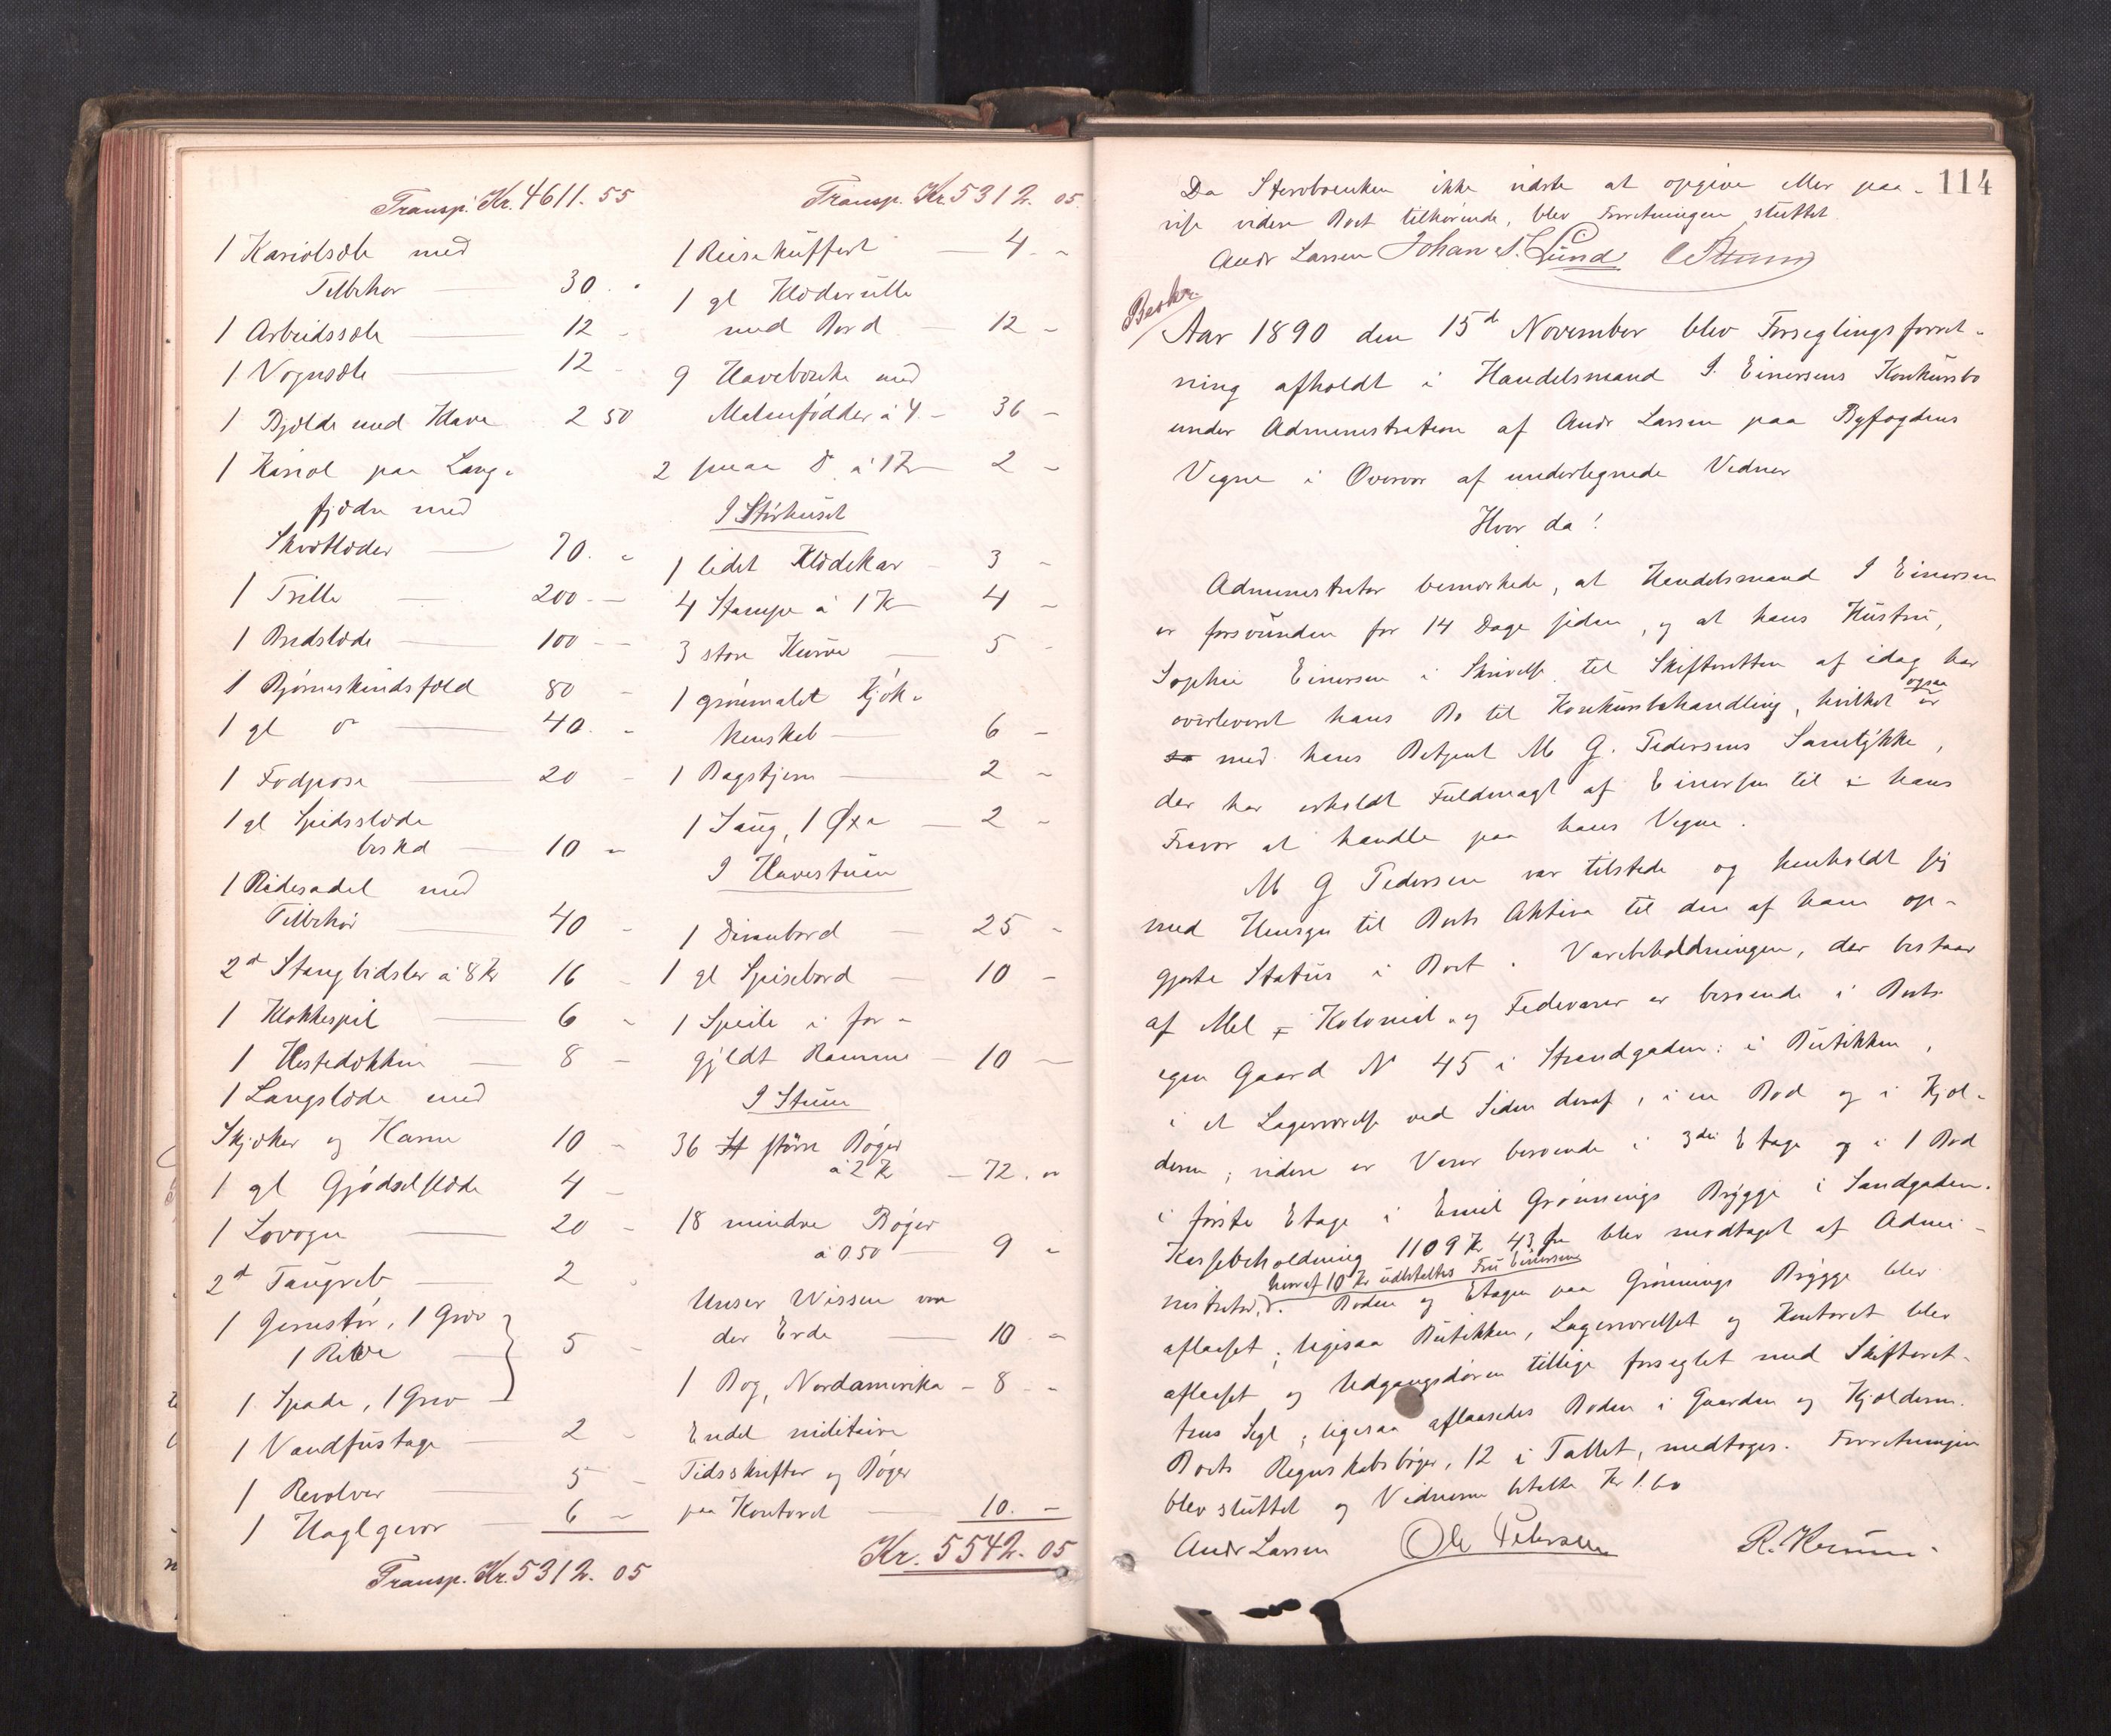 Transp. Kr. 4611. 55
1 Kariolsæle med
Tilbehør — 30. "
1 Arbeidssæle — 12 -
1 Vognsæle — 12 -
1 Bjælde med Klave 2 50
1 Kariol paa Lang-
fjædre med
Skvætlæder — 70. "
1 Trille — 200 - -
1 Bredslæde — 100 - -
1 Bjørneskindsfæld 80 -
1 gl do — 40. -
1 Fodpose — 20 -
1 gl Spidsslæde
besk.d — 10 -
1 Ridesadel med
Tilbehør — 40 -
2d Stangbidsler à 8 Kr 16 -
1 Klokkespil — 6 -
1 Hestedækken — 8 -
1 Langslæde med
Skjæker og Karm 10 -
1 gl Gjødselslæde 4 -
1 Lovogn — 20 -
2d Taugreb — 2 -
1 Jernstør, 1 Grev
1 Rive — 5 -
1 Spade, 1 Grev
1 Vandfustage — 2 -
1 Revolver — 5 -
1 Haglgevær — 6 -
Transp. Kr. 5312. 05
Transp. Kr. 5312. 05.
1 Reisekuffert — 4 -
1 gl Klæderulle
med Bord — 12 -
9 Havebænke med
Malmfødder à 4 - 36 -
2 smaa do à 1 Kr 2 -
I Størhuset
1 lidet Klædekar - 3 -
4 Stampe à 1 Kr 4 -
3 store Kurve — 5 -
1 grønmalet Kjøk-
kenskab — 6 -
1 Bagstjern — 2 -
1 Saug, 1 Øxe — 2 -
I Havestuen
1 Divanbord — 25 -
1 gl Spisebord — 10 -
1 Speile i for-
gyldt Ramme — 10 -
I Stuen
36 St større Bøger
à 2 Kr — 72. "
18 mindre Bøger
à 0.50 — 9 "
Unser Wissen von
der Erde — 10 - -
1 Bog, Nordamerika - 8 - -
Endel militaire
Tidsskrifter og Bøger
paa Kontoret — 10. -
Kr. 5542. 05
114
Da Stervboenken ikke vidste at opgive eller paa-
vise videre Boet tilhørende, blev Forretningen sluttet.
Andr Larsen Johan S. Lund
Beskr.
Aar 1890 den 15de November blev Forseglingsforret-
ning afholdt i Handelsmand I. Einersens Konkursbo
under Administration af Andr Larsen paa Byfogdens
Vegne i Overvær af undertegnede Vidner
Hvor da!
Administrator bemærkede, at Handelsmand I Einersen
er forsvunden for 14 Dage siden, og at hans Hustru,
Sophie Einersen i Skrivelse til Skifteretten af idag har
overleveret hans Bo til Konkursbehandling, hvilket ogsaa er
sa med hans Betjent M G. Pedersens Samtykke,
der har erholdt Fuldmagt af Einersen til i hans
Fravær at handle paa hans Vegne.
M G Pedersen var tilstede og henholdt sig
med Hensyn til Boets Aktiva til den af ham op-
gjorte Status i Boet. Varebeholdningen, der bestaar
af Mel - Kolonial- og Fedevarer er beroende i Boets
egen Gaard No 45 i Strandgaden: i Butikken,
i et Lagerværelse ved Siden deraf, i en Bod og i Kjæl-
deren; videre er Varer beroende i 3die Etage og i 1 Bod
i første Etage i Emil Grønnings Brygge i Sandgaden.
Kassebeholdning 1109 Kr 43 Øre blev modtaget af Admi-
hvoraf 10 Kr udbetaltes Fru Einersen
nistrator. Boden og Etagen paa Grønnings Brygge blev
aflaaset; ligesaa Butikken, Lagerværelset og Kontoret blev
aflaaset og Udgangsdøren tillige forseglet med Skifteret-
tens Segl; ligesaa aflaasedes Boden i Gaarden og Kjælderen.
Boets Regnskabsbøger, 12 i Tallet, medtoges. Forretningen
blev sluttet og Vidnerne betalte Kr 1.60
Andr Larsen Ole Petersen R.